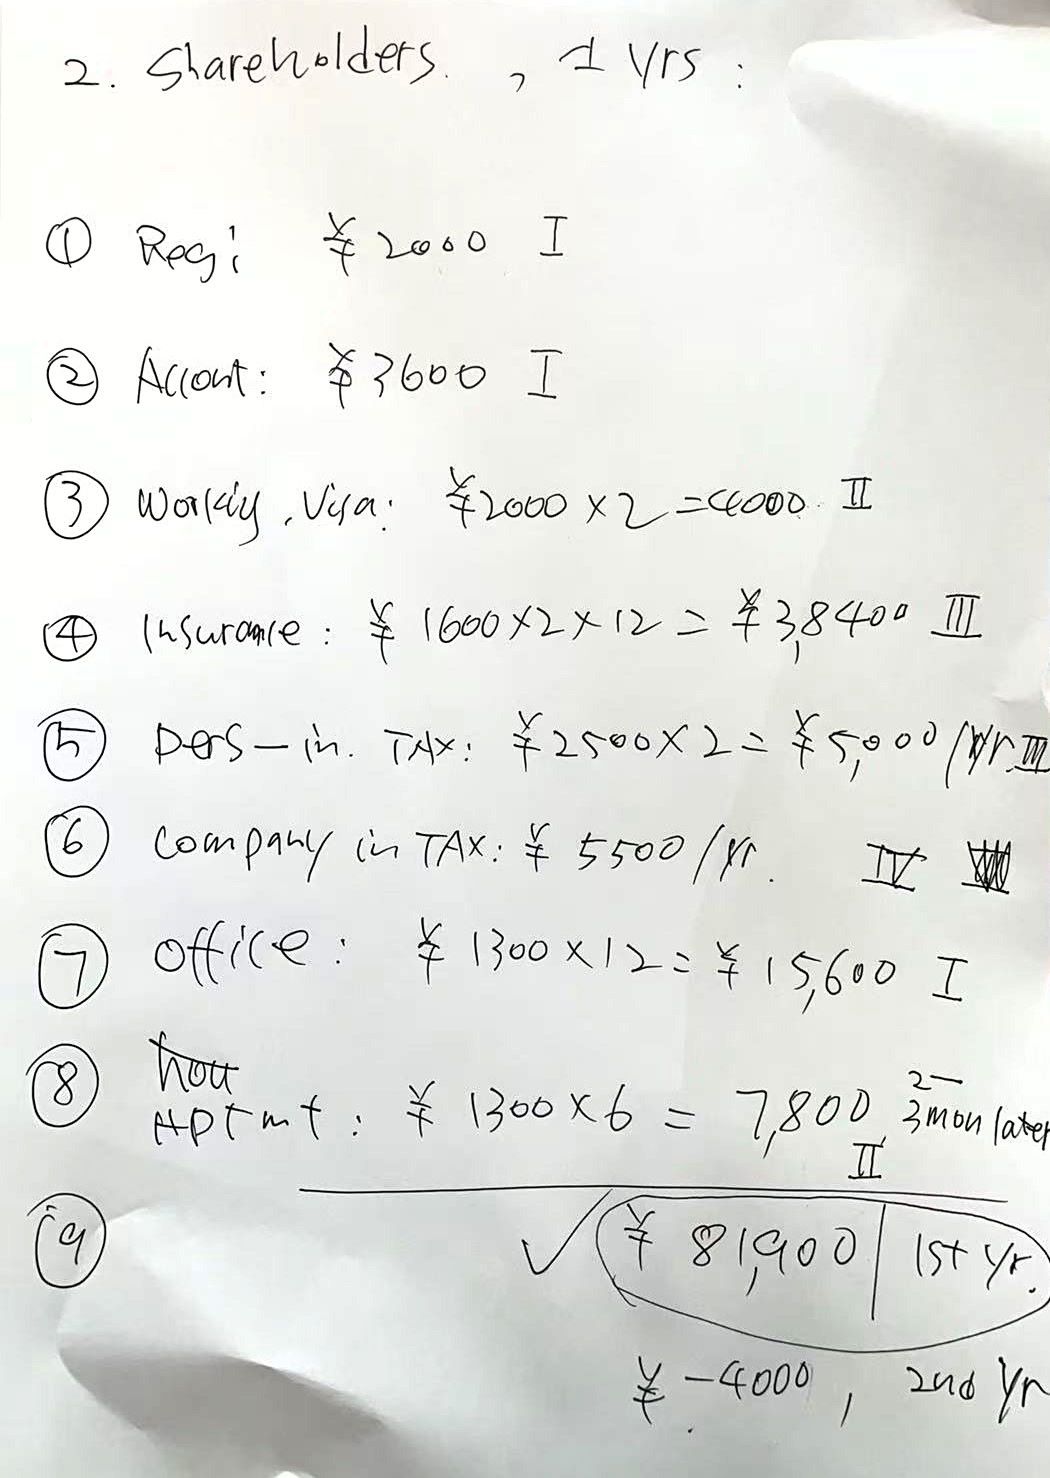 2. Shareholders. , 1 yrs :
① Regi: ¥2000 I
② Accont: ¥3600 I
③ Working. Visa: ¥2000×2=4000. II
④ Insurance: ¥1600×2×12=¥3,8400 III
⑤ Pers-in. TAX: ¥2500×2=¥5,000/yr. III
⑥ Company in TAX: ¥5500/yr. IV
⑦ office: ¥1300×12=¥15,600 I
⑧ Aptmt: ¥1300×6=7,800, 2-3mon later
II
⑨ √ ¥81,900 | 1st yr.
¥-4000, 2nd yr